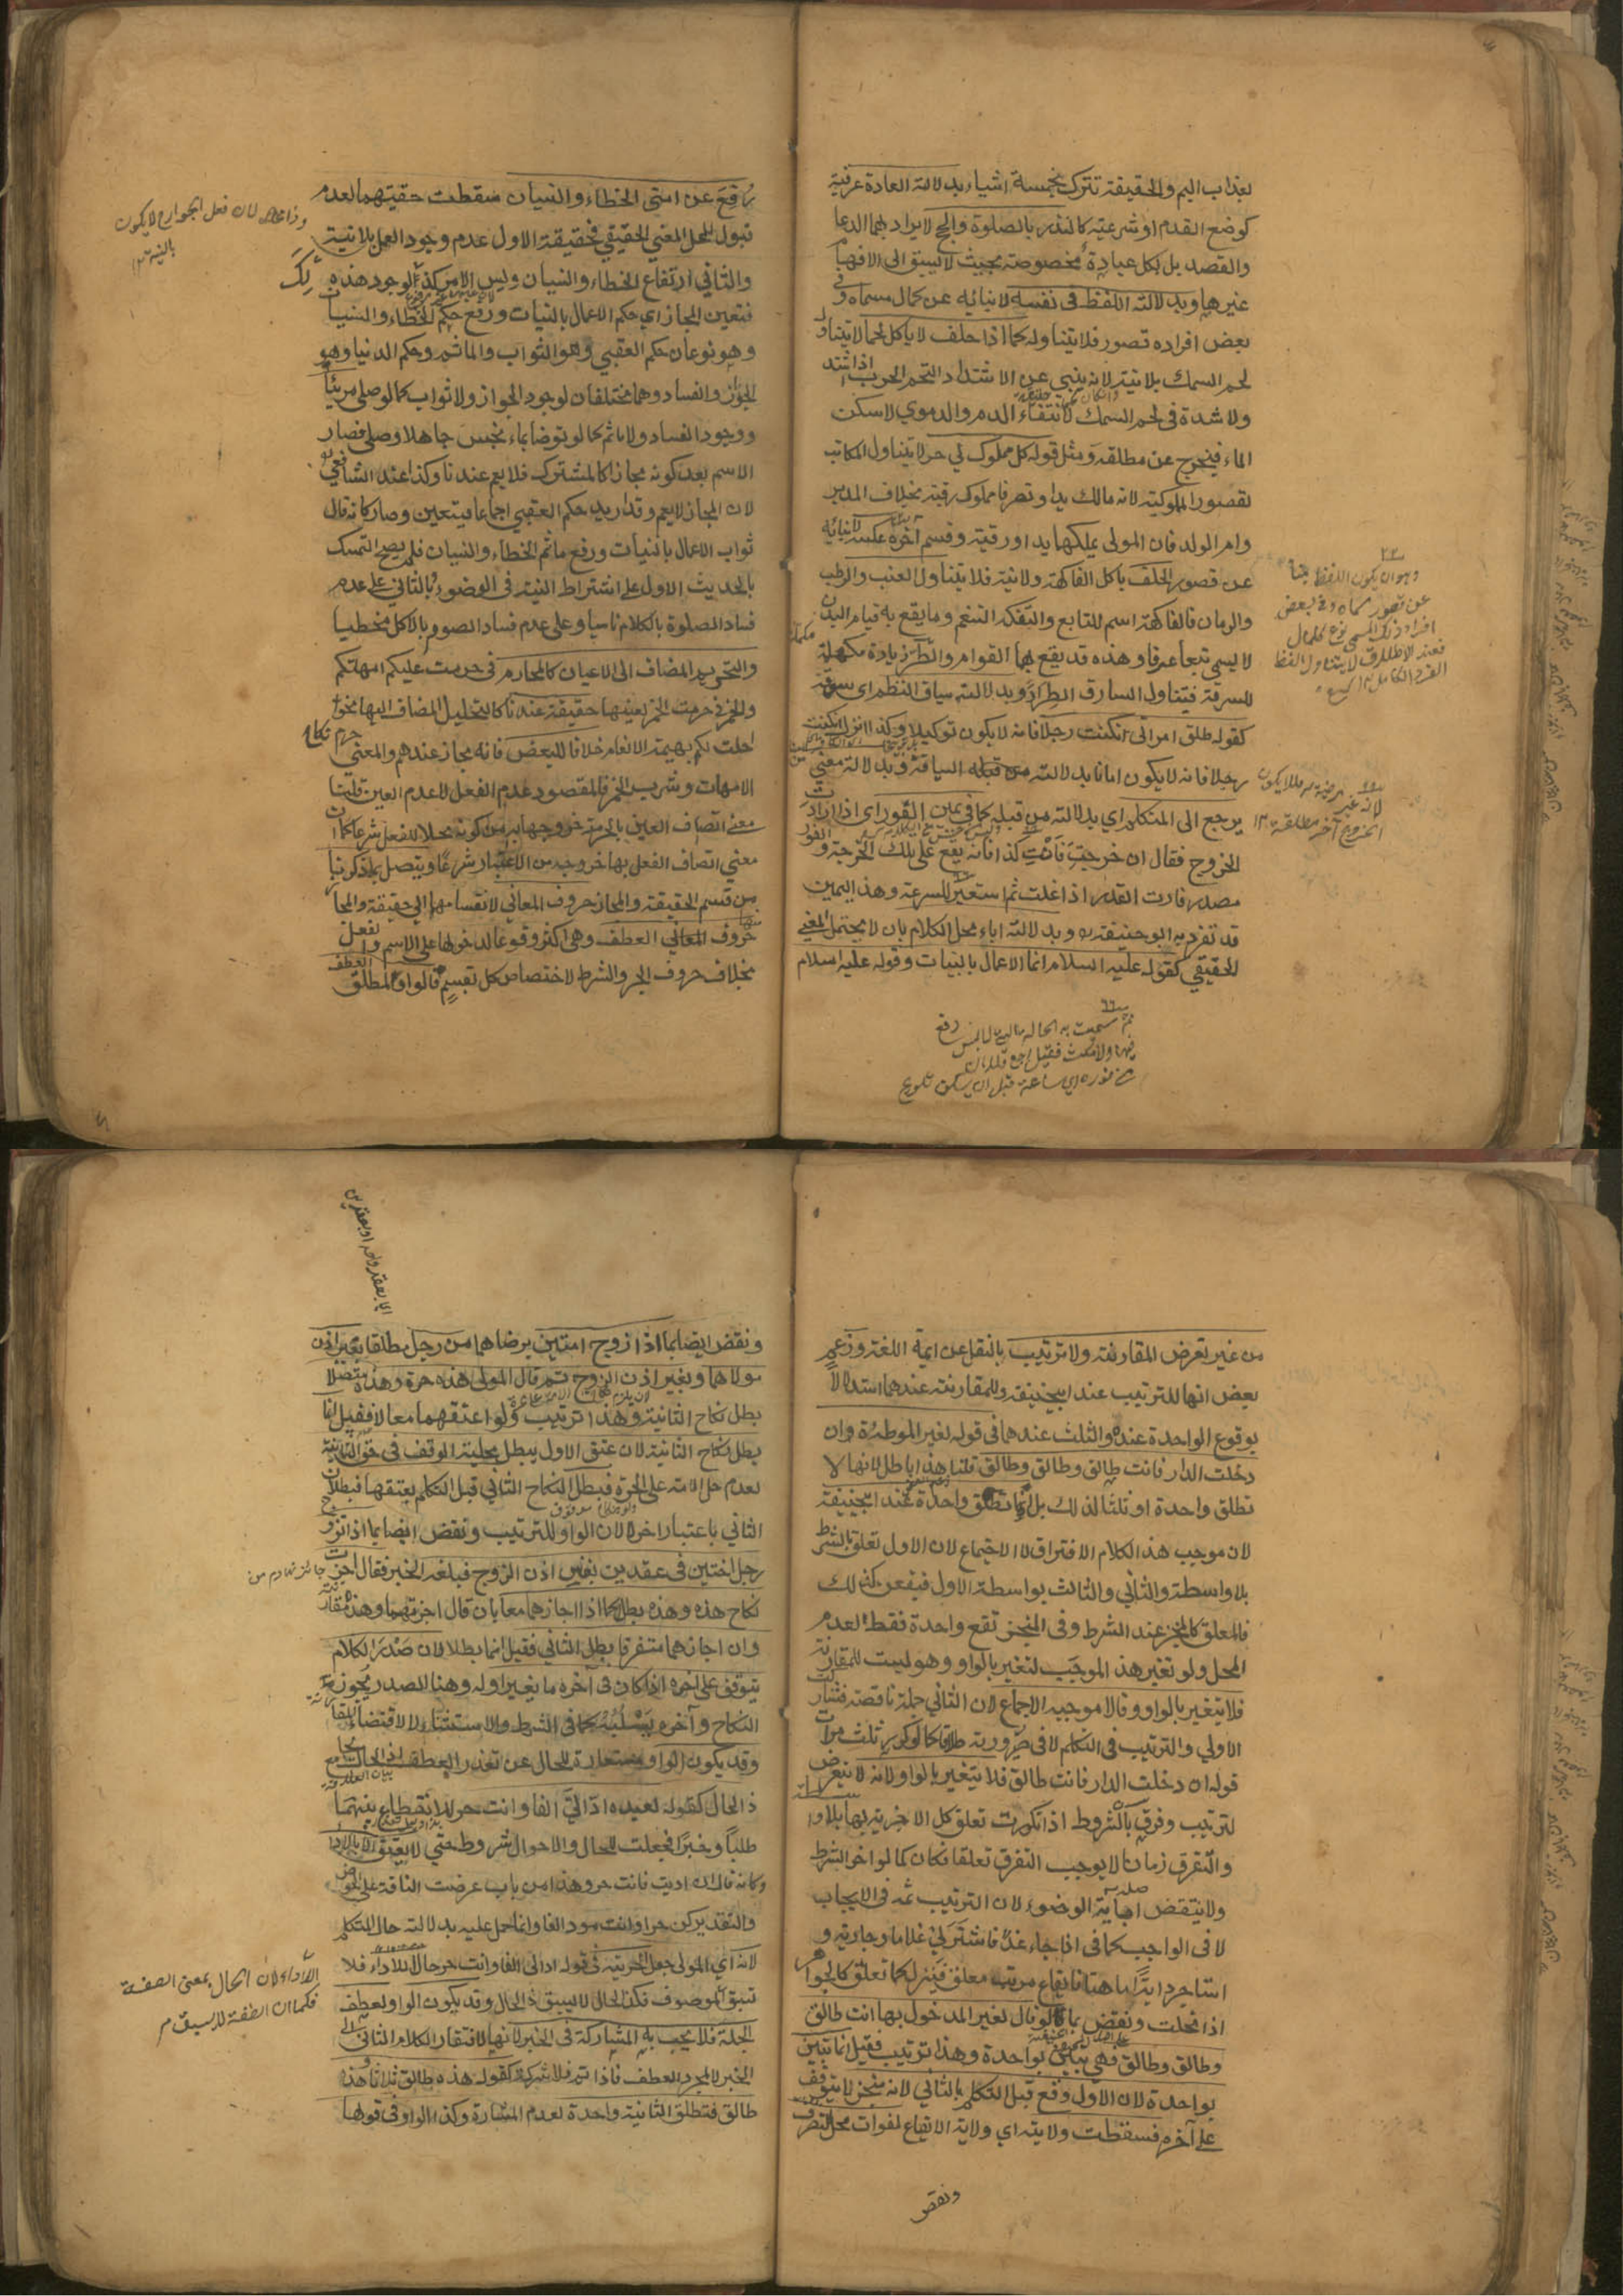 بعذاب اليم والحقيقة تترك بخمسة اشياء بدلالة العادة عرفية
كوضع القدم او شرعية كالنذر بالصلوة والحج لا يراد بهما الدعا
والقصد بل لكل عبادة مخصوصة بحيث لا يسبق الى الافهام
غيرها وبدلالة اللفظ فى نفسه لانبائه عن كمال مسماه وفى
بعض افراده قصور فلا يتناوله كما اذا حلف لا ياكل لحما لا يتناول
لحم السمك بلا نية لانه ينبي عن الاشتداد التحم الحرب اذا اشتد
ولا شدة فى لحم السمك لانتفاء الدم والدموي لا سكن
الماء فيخرج عن مطلقه ومثل قوله كل مملوك لي حر لا يتناول المكاتب
لقصور المملوكية لانه مالك يدا وتصرفا مملوك رقبة بخلاف المدبر
وام الولد فان المولى يملكهما يدا ورقبة وقسم آخره عكسه لانبائه
عن قصور الحلف باكل الفاكهة ولا نية فلا يتناول العنب والرطب
والرمان فالفاكهة اسم للتابع والتفكه التنعم وما يقع به قيام البدن
لا يسمى تبعا عرفا وهذه قد يقع بها القوام والطر زيادة مكملة
للسرقة فيتناول السارق الطرار وبدلالة سياق النظم اى سوقه
كقوله طلق امراتى ان كنت رجلا فانه لا يكون توكيلا وكذا انزل ان كنت
رجلا فانه لا يكون امانا بدلالة من قبله السياقة وبدلالة معنى
يرجع الى المتكلم اي بدلالة من قبله كما فى يمين الفور اى اذا ارادت
الخروج فقال ان خرجت فانت كذا فانه يقع على تلك الخرجة والفور
مصدر فارت القدر اذا غلت ثم استعير للسرعة وهذا اليمين
قد تفرد به ابو حنيفة وبدلالة اباء محل الكلام بان لا يحتمل المعنى
الحقيقي كقوله عليه السلام انما الاعمال بالنيات وقوله عليه السلام
وهو ان يكون اللفظ
عن قصور مسماه فى بعض
رفع عن امتى الخطاء والنسيان سقطت حقيقتهما لعدم
قبول المحل المعنى الحقيقي فحقيقة الاول عدم وجود العمل بلا نية
والثاني ارتفاع الخطاء والنسيان وليس الامر كذلك لوجود هذه
فتعين المجاز اي حكم الاعمال بالنيات ورفع حكم الخطاء والنسيان
وهو نوعان حكم العقبى وهو الثواب والماثم وحكم الدنيا وهو
الجواز والفساد وهما مختلفان لوجود الجواز ولا ثواب كما لو صلى مرئيا
ووجود الفساد ولا ماثم كما لو توضا بماء نجس جاهلا وصلى فصار
الاسم بعد كونه مجازا كالمشترك فلا يعم عندنا وكذا عند الشافعي
لان المجاز لا يعم وقد اريد حكم العقبى اجماعا فيتعين وصار كانه قال
ثواب الاعمال بالنيات ورفع ماثم الخطاء والنسيان فلم يصح التمسك
بالحديث الاول على اشتراط النية فى الوضوء وبالثاني على عدم
فساد الصلوة بالكلام ناسيا وعلى عدم فساد الصوم بالاكل مخطيا
والتحريم المضاف الى الاعيان كالمحارم فى حرمت عليكم امهتكم
والخمر فى حرمت الخمر لعينها حقيقة عندنا كالتحليل المضاف اليها نحو
احلت لكم بهيمة الانعام خلافا للبعض فانه مجاز عندهم والمعنى حرم نكاح
الامهات وشرب الخمر فالمقصود عدم الفعل لا عدم العين قلنا
معنى اتصاف العين بالحرمة خروجها من كونه محلا للفعل شرعا كما ان
معنى اتصاف الفعل بها خروجه من الاعتبار شرعا ويتصل بما ذكرنا
من قسم الحقيقة والمجاز حروف المعانى لانقسامها الى حقيقة والمجاز
حروف المعاني العطف وهى اكثر وقوعا لدخولها على الاسم والفعل
بخلاف حروف الجر والشرط لاختصاص كل تقسيم فالواو لمطلق العطف
وذا محال لان فعل الجوارح لا يكون
من غير تعرض المقارنة ولا ترتيب بالنقل عن ايمة اللغة وزعم
بعض انها للترتيب عند ابيحنيفة وللمقارنة عندهما استدلالا
بوقوع الواحدة عنده والثلث عندهما فى قوله لغير الموطوءة وان
دخلت الدار فانت طالق وطالق وطالق قلنا هذا باطل لانها لا
تطلق واحدة او ثلثا لذلك بل انما تطلق واحدة عند ابيحنيفة
لان موجب هذا الكلام الافتراق لا الاجتماع لان الاول تعلق بالشرط
بلا واسطة والثاني والثالث بواسطة الاول فيقعن كذلك
فالمعلق كالمنجز عند الشرط وفى المنجز تقع واحدة فقط لعدم
المحل ولو تغير هذا الموجب لتغير بالواو وهو ليست للمقارنة
فلا يتغير بالواو وقالا موجبه الاجتماع لان الثاني جملة ناقصة فشاركت
الاولى والترتيب فى التكلم لا فى صيرورته طلاقا كما لو كرر ثلث مرات
قوله ان دخلت الدار فانت طالق فلا يتغير بالواو لانه لا يتعرض
لترتيب وفرق بالشروط اذا تكررت تعلق كل الاجزية بها بلا واسطة
والتفرق زمانا لا يوجب التفرق تعلقا فكان كما لو اخر الشرط
ولا ينتقض اجابة الوضوء لان الترتيب ثمه فى الايجاب
لا فى الواجب كما فى اذا جاء غد فاشتر لي غلاما وجارية و
استاجر دابة اما هنا فايقاع مرتب معلق فينزل كما تعلق كالجواهر
اذا نحلت ونقض بما لو قال لغير المدخول بها انت طالق
وطالق وطالق فهي تبين بواحدة وهذا ترتيب فقيل انما تبين
بواحدة لان الاول وقع قبل التكلم بالثاني لانه منجز لا يتوقف
على آخره فسقطت ولايته اي ولاية الايقاع لفوات محل التصرف
ونقض
ونقض ايضا بما اذا زوج امتين برضاهما من رجل مطلقا بغير اذن
مولاهما وبغير اذن الزوج ثم قال المولى هذه حرة وهذه متصلا
بطل نكاح الثانية وهذا ترتيب ولو اعتقهما معا لا فقيل انما
يطل نكاح الثانية لان عتق الاول يبطل محلية الوقف فى حق الثانية
لعدم حل الامة على الحرة فبطل النكاح الثاني قبل التكلم بعتقها فبطلان
الثاني باعتبار آخر لا لان الواو للترتيب ونقض ايضا بما اذا تزوج
رجل اختين فى عقدين بغير اذن الزوج فبلغه الخبر فقال اجزت
نكاح هذه وهذه بطلا كما اذا اجازهما معا بان قال اجزتهما وهذه مقارنة
وان اجازهما متفرقا بطل الثاني فقيل انما بطلا لان صدر الكلام
يتوقف على آخره اذا كان فى آخره ما يغير اوله وهنا الصدر يجوز به
النكاح وآخره يسلبه كما فى الشرط والاستثناء لا لاقتضاء المقارنة
وقد يكون الواو مستعارة للحال عن تعذر العطف
ذ الحال كقوله لعبده ادّ اليّ الفا وانت حر للانقطاع بينهما
طلبا وخبرا فجعلت للحال والاحوال شروط حتى لا يعتق الا بالاداء
وكانه قال ان اديت فانت حر وهذا من باب عرضت الناقة على الحوض
والتقدير كن حرا وانت مود الفا وانما حمل عليه بدلالة حال المتكلم
لانه اي المولى جعل الحرية فى قوله اد الى الفا وانت حر حالا للاداء فلا
تسبق الموصوف فكذا الحال لا يسبق ذ الحال وقد يكون الواو لعطف
الجملة فلا يجب به المشاركة فى الخبر لانها لافتقار الكلام الثاني الى
الخبر لا لمجرد العطف فاذا تم فلا شركة كقوله هذه طالق ثلاثا وهذه
طالق فتطلق الثانية واحدة لعدم المشاركة وكذا الواو فى قولها
الاداء لان الحال بمعنى الصفة
فكما ان الصفة لا يسبق